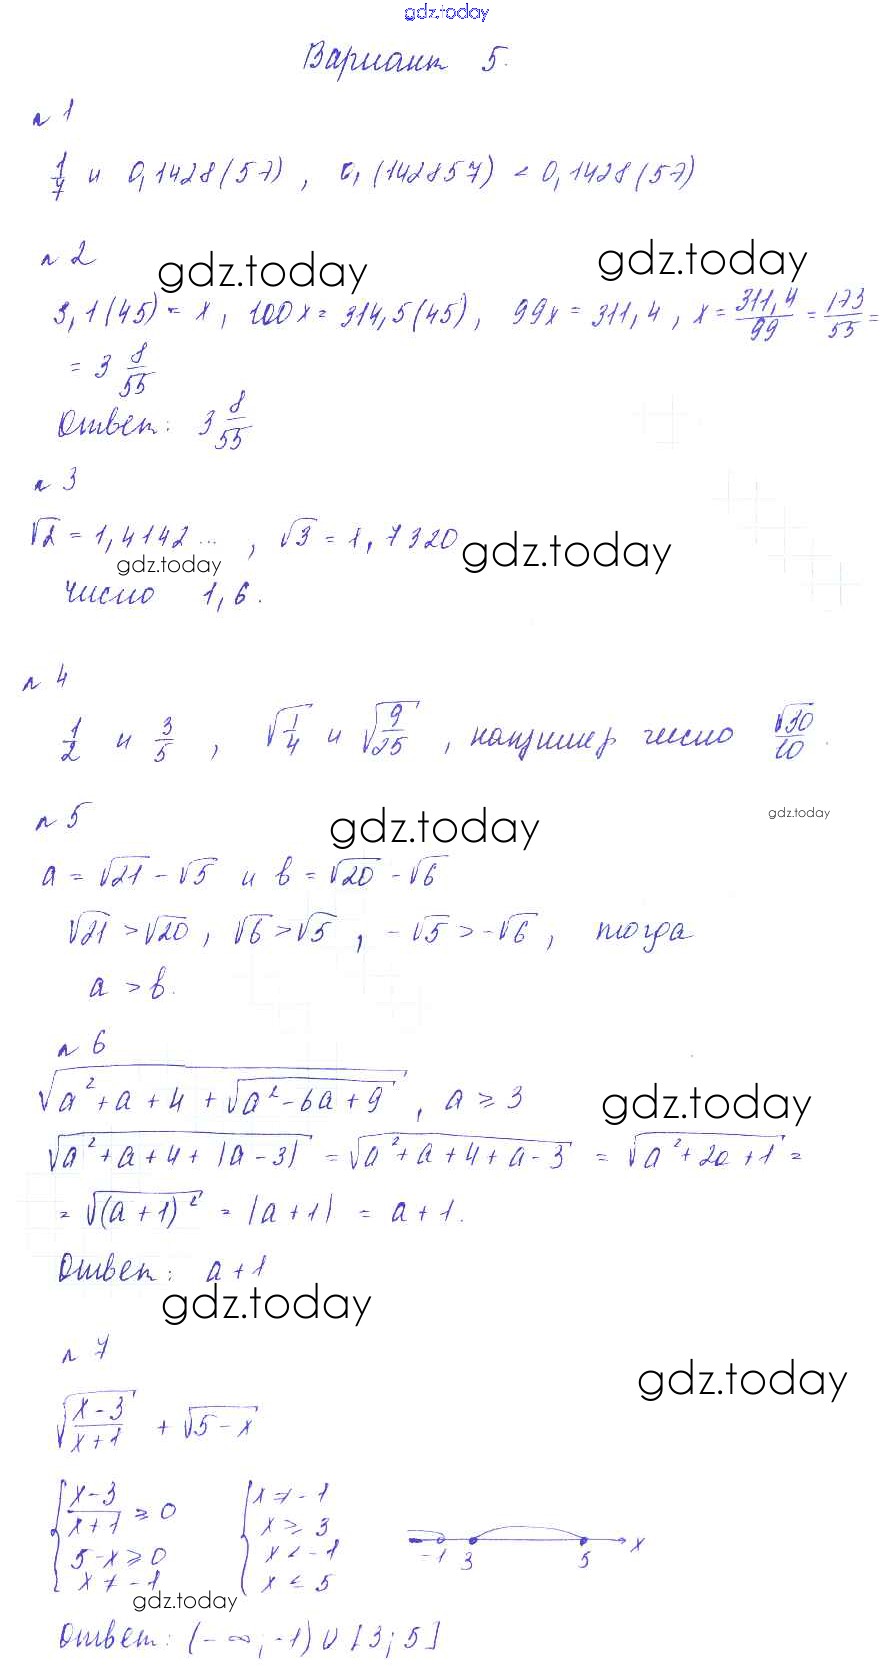 gdz.today
Вариант 5.
n 1
1/7 и 0,1428(57), 0,(142857) < 0,1428(57)
n 2
gdz.today gdz.today
3,1(45) = x, 100x = 314,5(45), 99x = 311,4, x = 311,4/99 = 173/55 =
= 3 8/55
Ответ: 3 8/55
n 3
√2 = 1,4142..., √3 = 1,7320 gdz.today
gdz.today
число 1,6.
n 4
1/2 и 3/5, √(1/4) и √(9/25), например число √30/10.
n 5
gdz.today gdz.today
a = √21 - √5 и b = √20 - √6
√21 > √20, √6 > √5, -√5 > -√6, тогда
a > b.
n 6
√(a² + a + 4 + √(a² - 6a + 9)), a ≥ 3 gdz.today
√(a² + a + 4 + |a - 3|) = √(a² + a + 4 + a - 3) = √(a² + 2a + 1) =
= √((a + 1)²) = |a + 1| = a + 1.
Ответ: a + 1
gdz.today
n 7
gdz.today
√((x - 3)/(x + 1)) + √(5 - x)
{ (x-3)/(x+1) ≥ 0 { x ≠ -1
x ≥ 3
5 - x ≥ 0 x < -1
x ≠ -1 x ≤ 5
-1 3 5 x
gdz.today
Ответ: (-∞; -1) ∪ [3; 5]